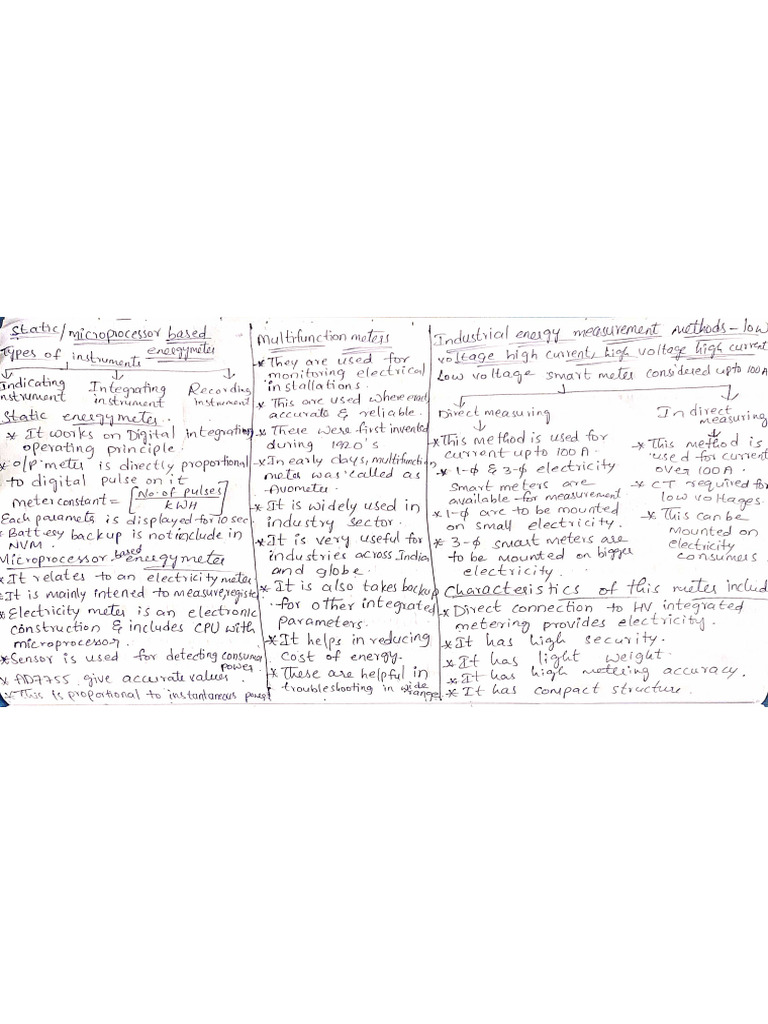 Static/microprocessor based
energymeter
Types of instruments
Indicating
instrument
Integrating
instrument
Recording
instrument
Static energymeter.
* It works on Digital integration
operating principle.
* O/P meter is directly proportional
to digital pulse on it
meter constant = [No. of pulses / kWH]
Each paramets is displayed for 10 sec.
* Battery backup is not include in
NVM.
Microprocessor based eneergymeter
* It relates to an electricity meter
* It is mainly intened to measure, regist
* Electricity meter is an electronic
construction & includes CPU with
microprocessor.
* Sensor is used for detecting consumer
power.
* AD7755 give accurate values.
* This is propational to instantaneous power
Multifunction meters
* They are used for
monitoring electrical
installations.
* This are used where
accurate & reliable.
* These were first invented
during 1920's
* In early days, multifunction
meter was called as
Avometer.
* It is widely used in
industry sector.
* It is very useful for
industries across India
and globe.
* It is also takes backup
for other integrated
parameters.
* It helps in reducing
cost of energy.
* These are helpful in
troubleshooting in wide
range
Industrial energy measurement methods - low
voltage high current, high voltage high current
Low voltage smart meter considered upto 100A
Direct measuring
* This method is used for
current upto 100 A.
* 1-ϕ & 3-ϕ electricity
smart meters are
available for measurement
* 1-ϕ are to be mounted
on small electricity.
* 3-ϕ smart meters are
to be mounted on bigger
electricity.
In direct
measuring
* This method is
used for current
over 100 A.
* CT required for
low voltages.
* This can be
mounted on
electricity
consumers
Characteristics of this meter includ
* Direct connection to HV integrated
metering provides electricity.
* It has high security.
* It has light weight.
* It has high metering accuracy.
* It has compact structure.